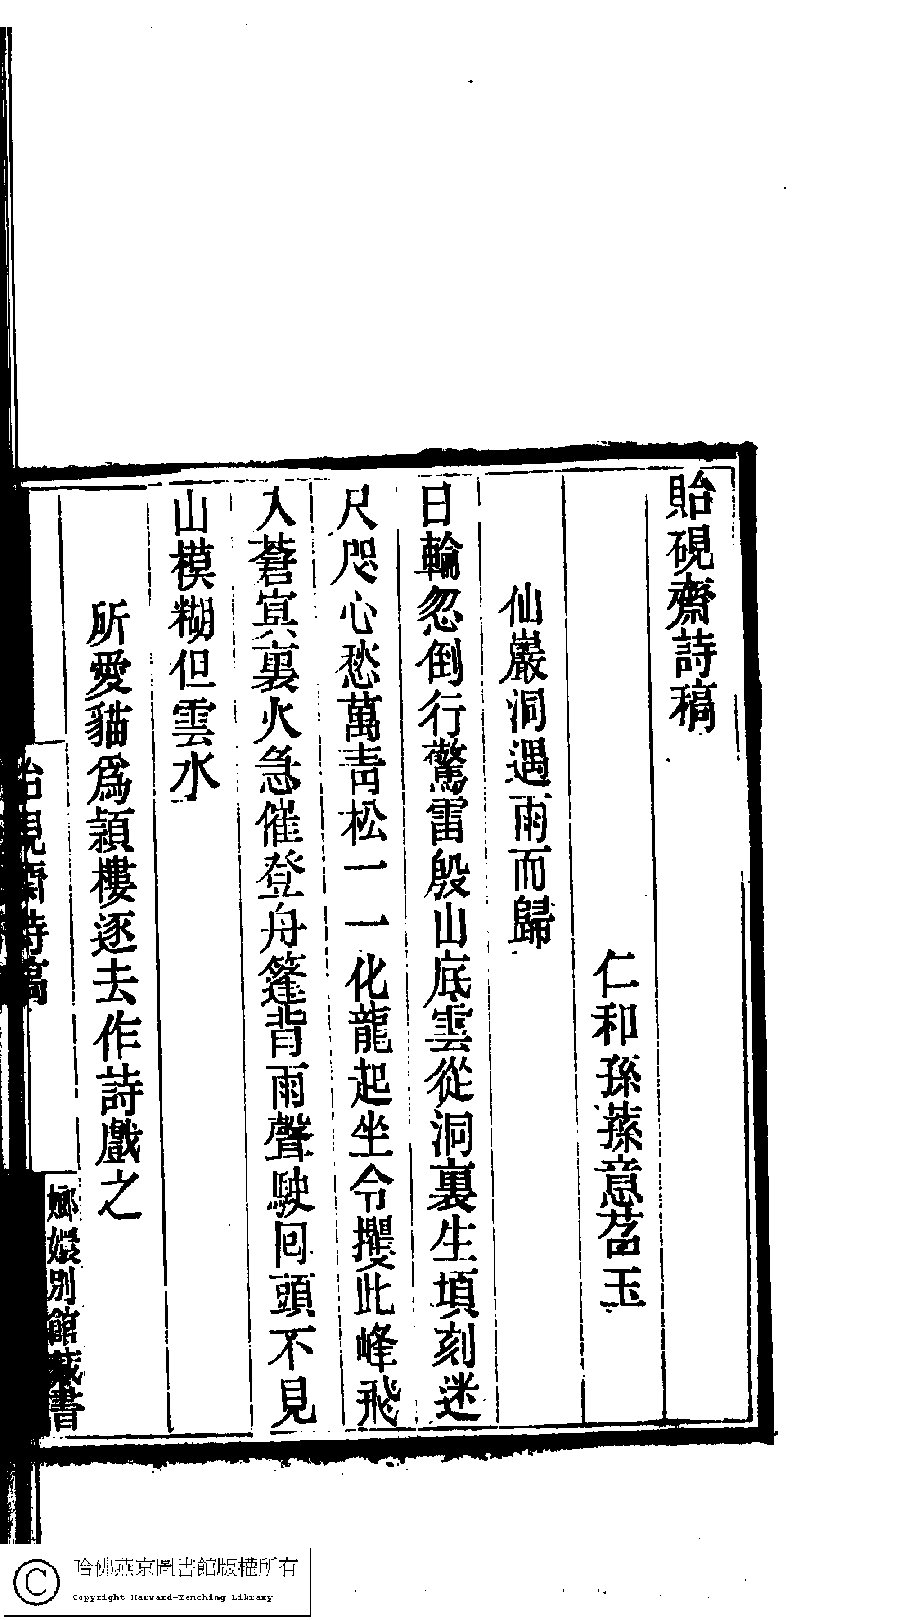 貽硯齋詩稿
仁和孫蓀意苕玉
仙巖洞遇雨而歸
日輪忽倒行驚雷殷山底雲從洞裏生頃刻迷
尺咫心愁萬青松一一化龍起坐令攫此峰飛
入蒼冥裏火急催登舟篷背雨聲駛回頭不見
山模糊但雲水
所愛貓爲潁樓逐去作詩戲之
貽硯齋詩稿
嫏嬛別館藏書
哈佛燕京圖書館版權所有
Copyright Harvard-Yenching Library